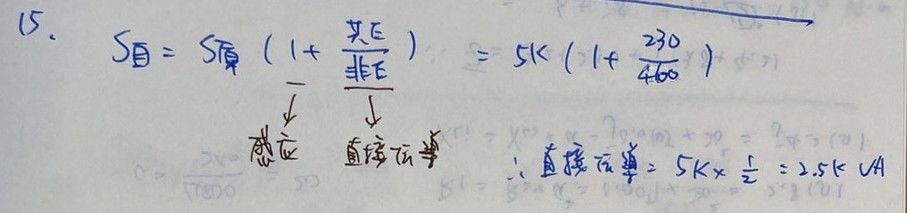 15.
S自 = S原 ( 1 + 共E/非E ) = 5K ( 1 + 230/460 )
↓ ↓
感应 直接伝導
∴ 直接伝導 = 5K × 1/2 = 2.5K VA